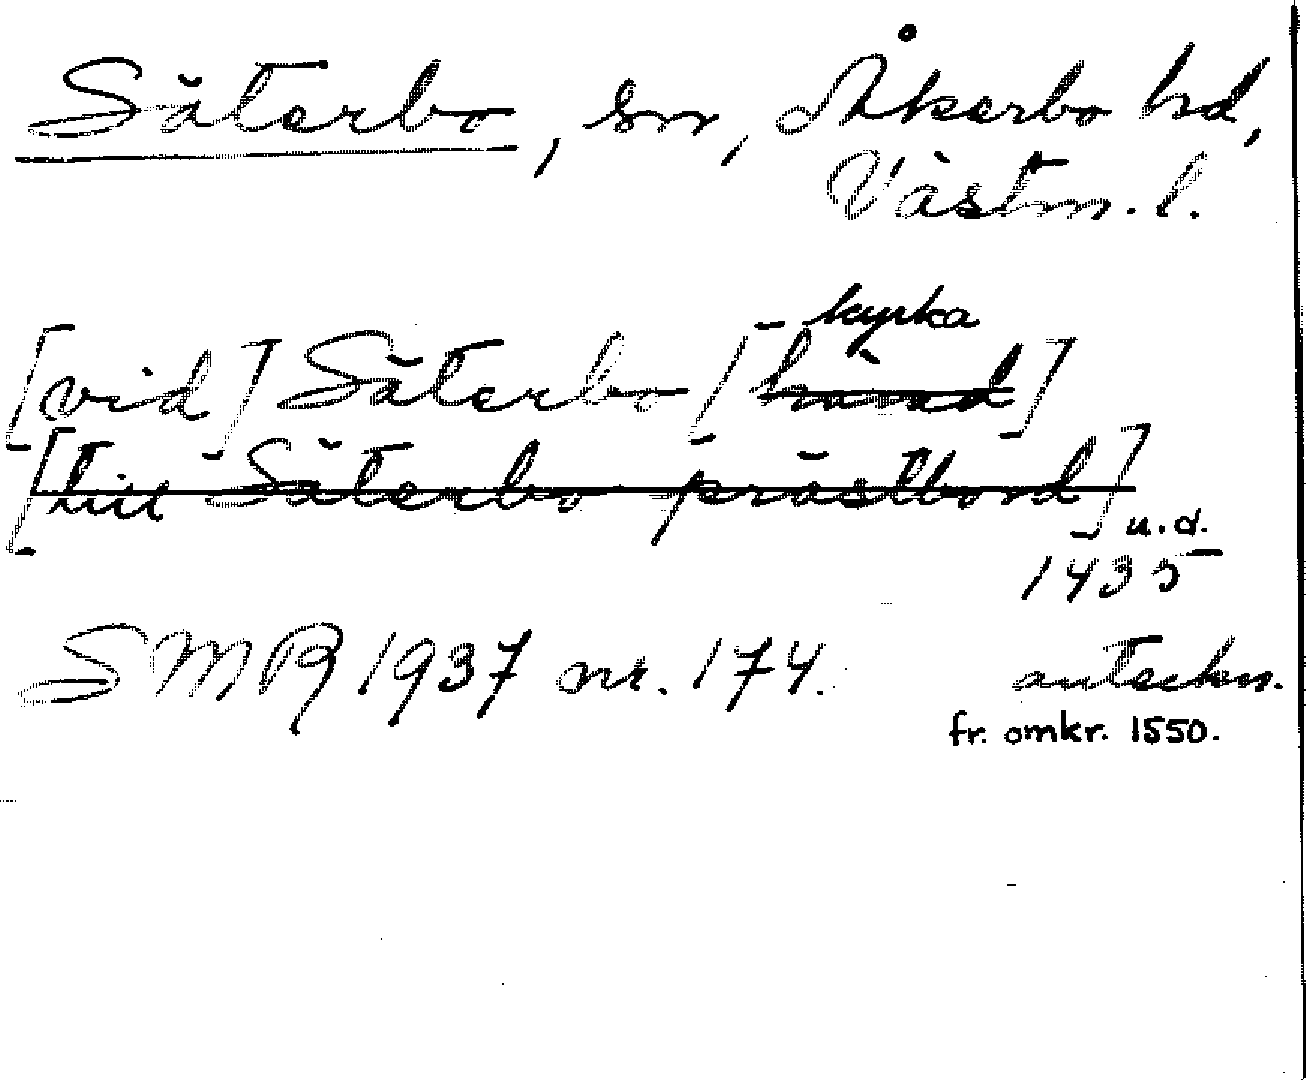 Säterbo, sn, Åkerbo hd,
Västm. l.
kyrka
[vid] Säterbo [härad]
[till Säterbo prästbord]
u. d.
1435
SMR 1937 nr. 174. anteckn.
fr. omkr. 1550.